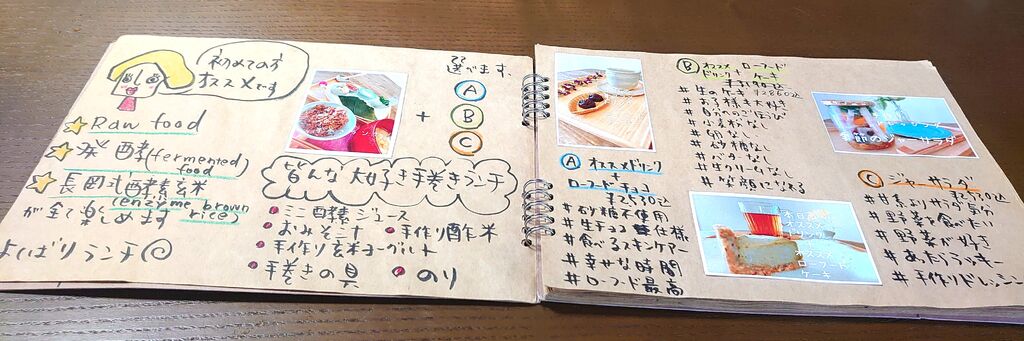 初めての方
オススメです
Raw food
発酵(fermented food)
長岡式酵素玄米
(enzyme brown rice)
が全て楽しめます
よくばりランチ
選べます。
+
A
B
C
皆んな大好き手巻きランチ
ミニ酵素ジュース
おみそ汁
手作り酢米
手作り玄米ヨーグルト
手巻きの具
のり
A オススメドリンク
+
ローフードチョコ
¥2530込
#砂糖不使用
#生チョコ 仕様
#食べるスキンケアー
#幸せな時間
#ローフード最高
B オススメ ローフード
ドリンク + ケーキ
#お子様も大好き
#自分へのごほうび
#小麦粉なし
#卵なし
#砂糖なし
#バターなし
#生クリームなし
#笑顔になれる
本日の
オススメ
ドリンク
ローフード
ケーキ
C ジャーサラダ
¥2530込
#甘いよりサラダ気分
#野菜を食べたい
#野菜が好き
#あたらラッキー
#手作りドレッシング